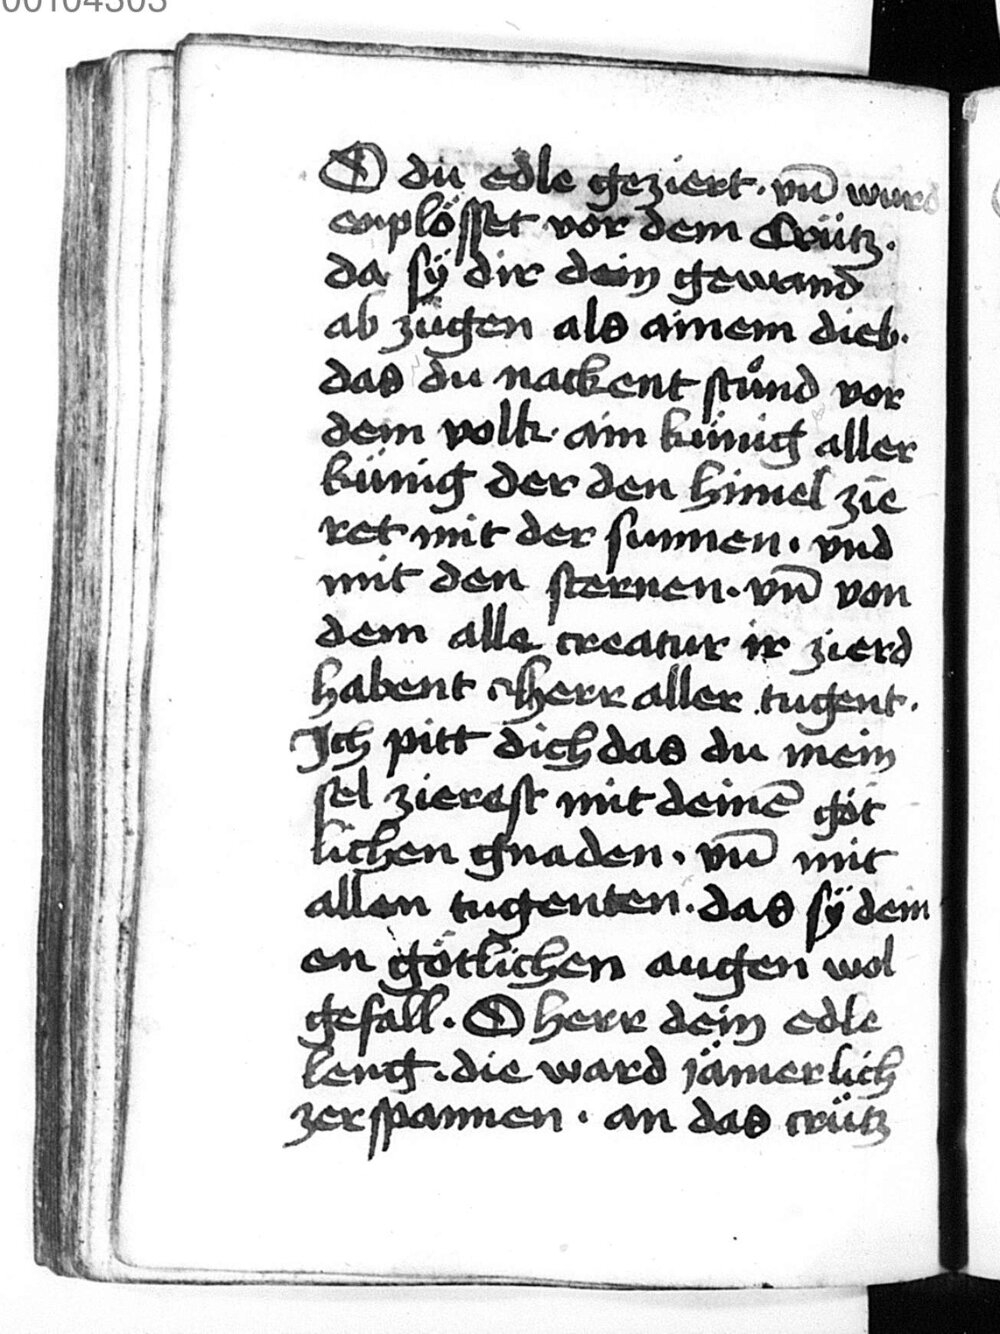 00104303
O du edle geziert · vn̄ wurd
enplösset vor dem Crütz ·
da sÿ dir dein gewand
ab zügen als ainem dieb ·
das du nackent stůnd vor
dem volk · ain künig aller
künig der den himel zie
ret mit der sunnen · vnd
mit den sternen · vn̄ von
dem alle creatur ir zierd
habent O herr aller tugent ·
Ich pitt dich das du mein
sel zierest mit deinē göt
lichen gnaden · vn̄ mit
allen tugenten · das sÿ dein
en götlichen augen wol
gefall · O herr dein edle
leng · die ward jämerlich
zerspannen · an das crütz